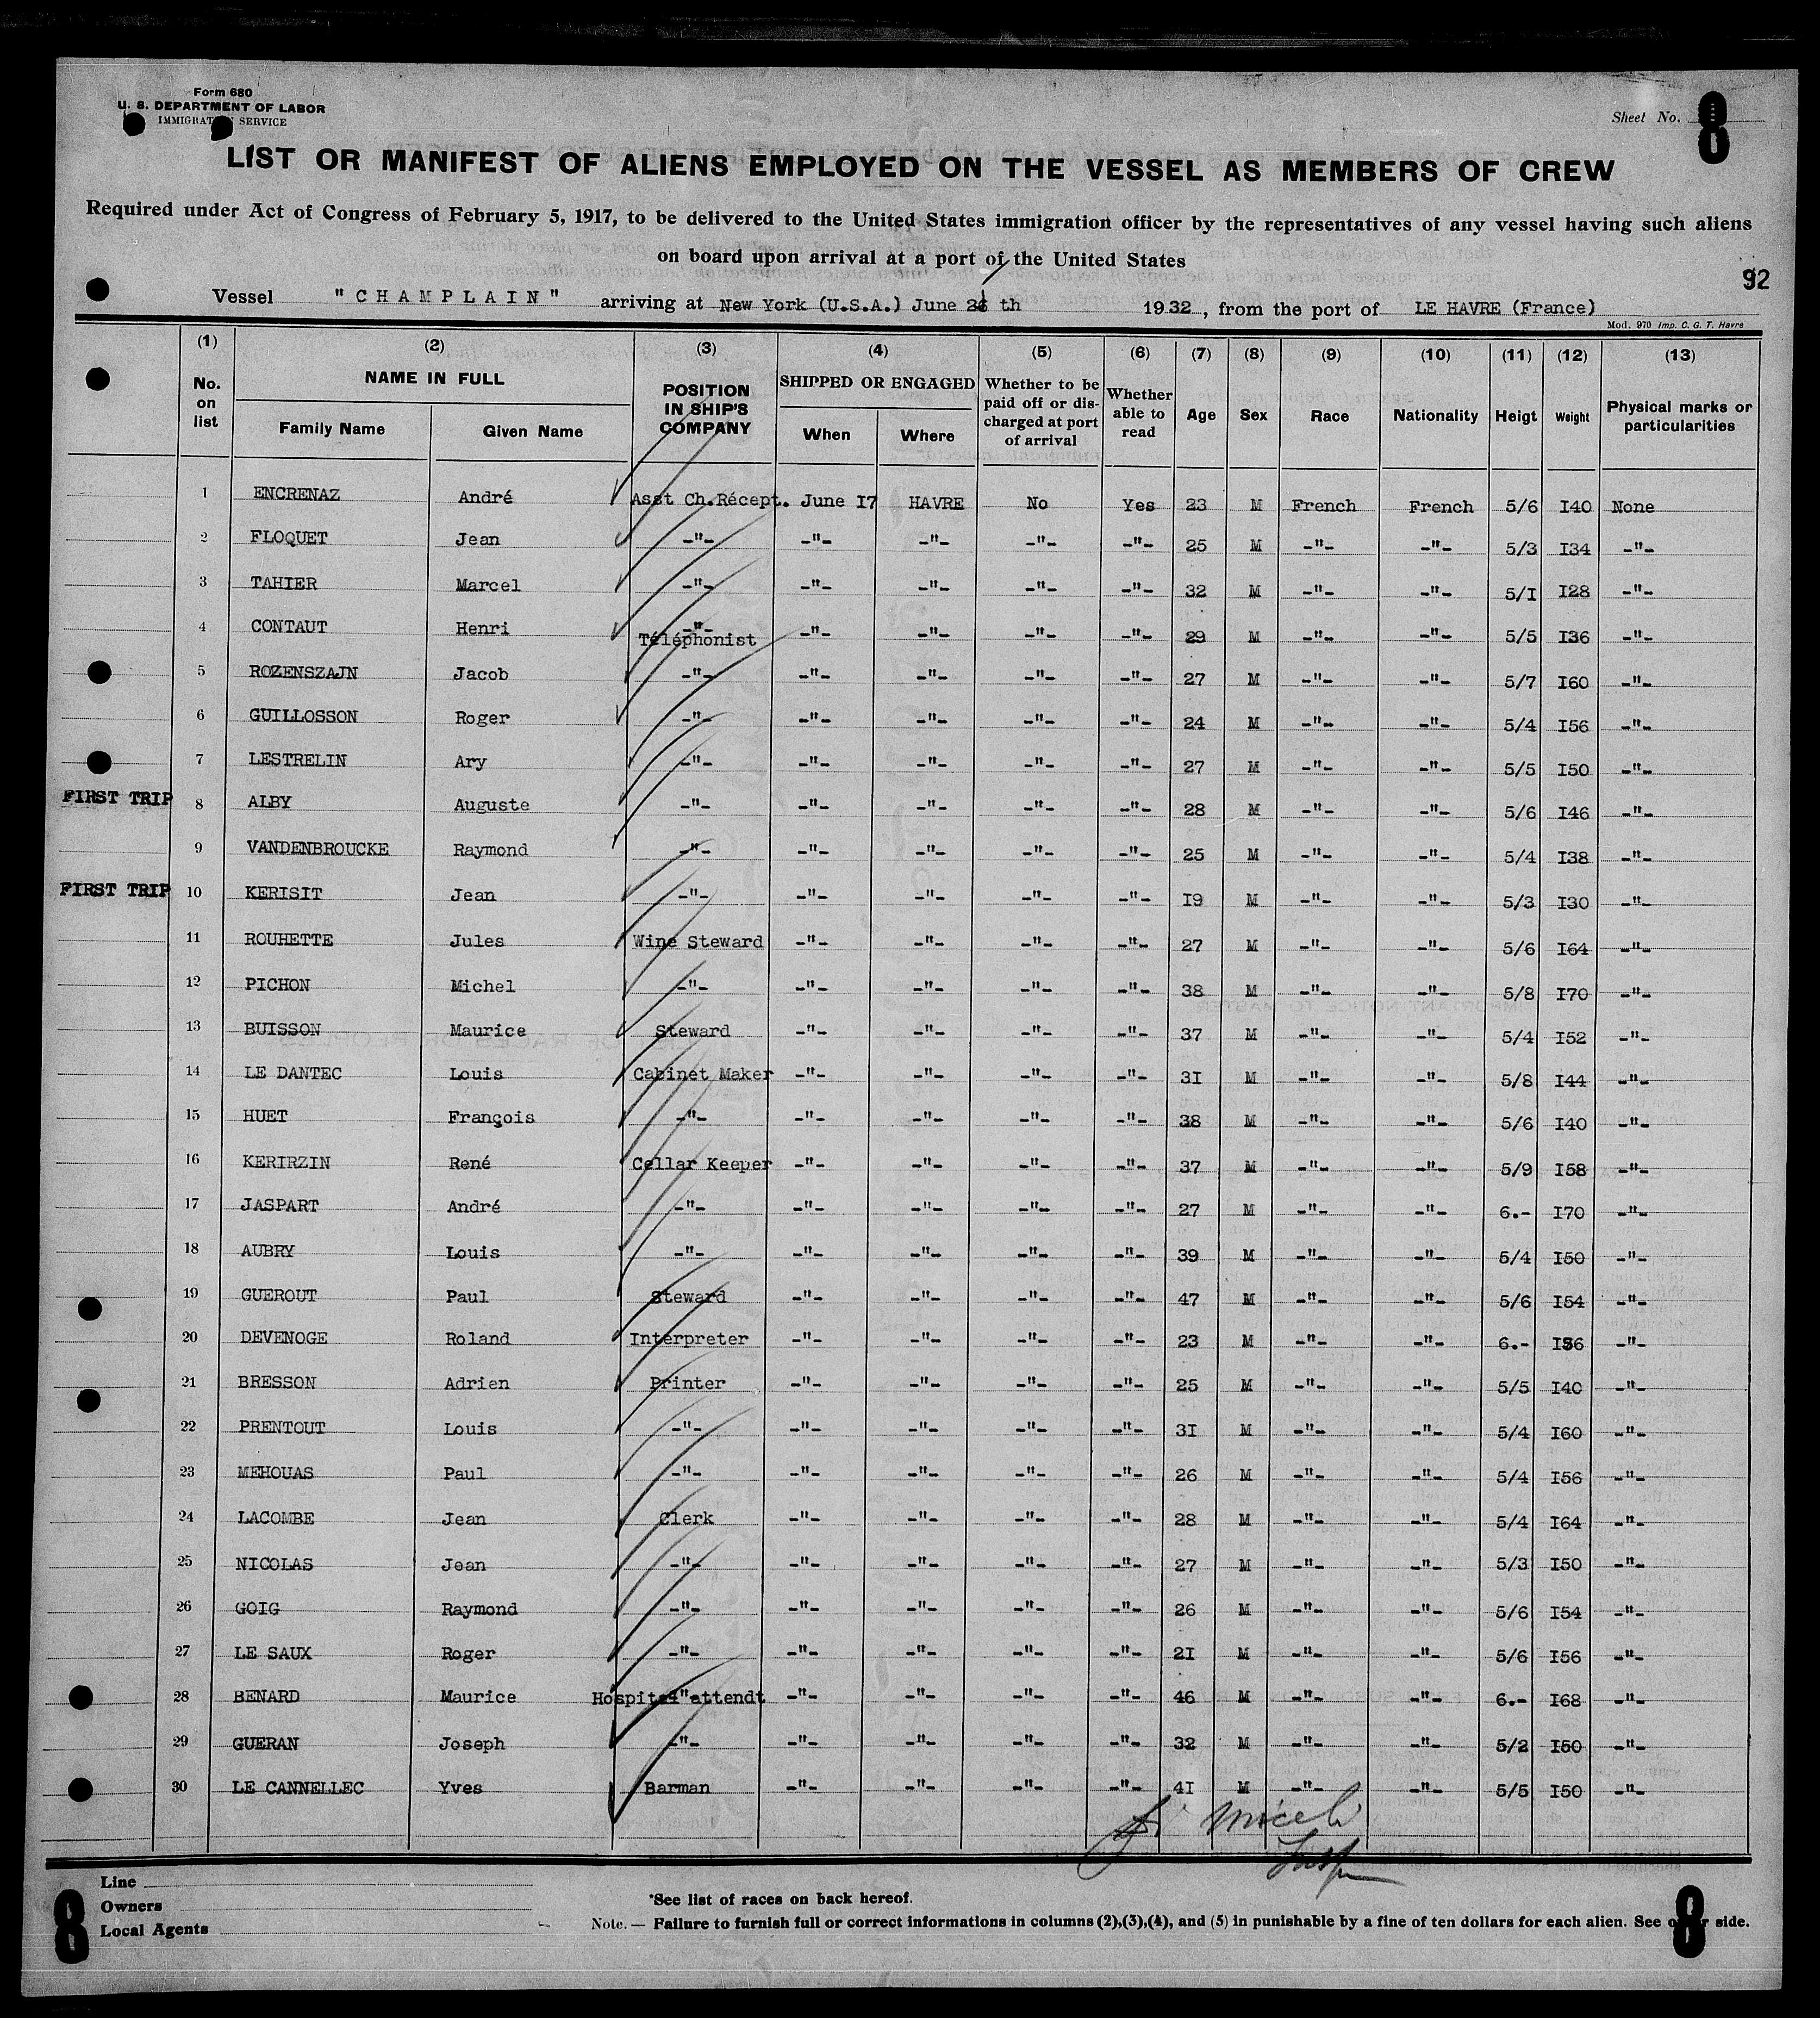 Form 680
U. S. DEPARTMENT OF LABOR
IMMIGRATION SERVICE
Sheet No. 8
LIST OR MANIFEST OF ALIENS EMPLOYED ON THE VESSEL AS MEMBERS OF CREW
Required under Act of Congress of February 5, 1917, to be delivered to the United States immigration officer by the representatives of any vessel having such aliens
on board upon arrival at a port of the United States
92
Vessel "CHAMPLAIN" arriving at New York (U.S.A.) June th 1932, from the port of LE HAVRE (France)
Mod. 970 Imp. C. G. T. Havre
(1) (2) (3) (4) (5) (6) (7) (8) (9) (10) (11) (12) (13)
No. on list NAME IN FULL Family Name Given Name POSITION IN SHIP'S COMPANY SHIPPED OR ENGAGED When Where Whether to be paid off or discharged at port of arrival Whether able to read Age Sex Race Nationality Heigt Weight Physical marks or particularities
1 ENCRENAZ André Asst Ch.Récept. June I7 HAVRE No Yes 23 M French French 5/6 I40 None
2 FLOQUET Jean -"- -"- -"- -"- -"- 25 M -"- -"- 5/3 I34 -"-
3 TAHIER Marcel -"- -"- -"- -"- -"- 32 M -"- -"- 5/I I28 -"-
4 CONTAUT Henri -"- -"- -"- -"- -"- 29 M -"- -"- 5/5 I36 -"-
Téléphonist
5 ROZENSZAJN Jacob -"- -"- -"- -"- -"- 27 M -"- -"- 5/7 I60 -"-
6 GUILLOSSON Roger -"- -"- -"- -"- -"- 24 M -"- -"- 5/4 I56 -"-
7 LESTRELIN Ary -"- -"- -"- -"- -"- 27 M -"- -"- 5/5 I50 -"-
FIRST TRIP 8 ALBY Auguste -"- -"- -"- -"- -"- 28 M -"- -"- 5/6 I46 -"-
9 VANDENBROUCKE Raymond -"- -"- -"- -"- -"- 25 M -"- -"- 5/4 I38 -"-
FIRST TRIP 10 KERISIT Jean -"- -"- -"- -"- -"- I9 M -"- -"- 5/3 I30 -"-
11 ROUHETTE Jules Wine Steward -"- -"- -"- -"- 27 M -"- -"- 5/6 I64 -"-
12 PICHON Michel -"- -"- -"- -"- -"- 38 M -"- -"- 5/8 I70 -"-
13 BUISSON Maurice Steward -"- -"- -"- -"- 37 M -"- -"- 5/4 I52 -"-
14 LE DANTEC Louis Cabinet Maker -"- -"- -"- -"- 3I M -"- -"- 5/8 I44 -"-
15 HUET François -"- -"- -"- -"- -"- 38 M -"- -"- 5/6 I40 -"-
16 KERIRZIN René Cellar Keeper -"- -"- -"- -"- 37 M -"- -"- 5/9 I58 -"-
17 JASPART André -"- -"- -"- -"- -"- 27 M -"- -"- 6.- I70 -"-
18 AUBRY Louis -"- -"- -"- -"- -"- 39 M -"- -"- 5/4 I50 -"-
19 GUEROUT Paul Steward -"- -"- -"- -"- 47 M -"- -"- 5/6 I54 -"-
20 DEVENOGE Roland Interpreter -"- -"- -"- -"- 23 M -"- -"- 6.- -"-
21 BRESSON Adrien Printer -"- -"- -"- -"- 25 M -"- -"- 5/5 I40 -"-
22 PRENTOUT Louis -"- -"- -"- -"- -"- 3I M -"- -"- 5/4 I60 -"-
23 MEHOUAS Paul -"- -"- -"- -"- -"- 26 M -"- -"- 5/4 I56 -"-
24 LACOMBE Jean Clerk -"- -"- -"- -"- 28 M -"- -"- 5/4 I64 -"-
25 NICOLAS Jean -"- -"- -"- -"- -"- 27 M -"- -"- 5/3 I50 -"-
26 GOIG Raymond -"- -"- -"- -"- -"- 26 M -"- -"- 5/6 I54 -"-
27 LE SAUX Roger -"- -"- -"- -"- -"- 2I M -"- -"- 5/6 I56 -"-
28 BENARD Maurice Hospital attendt -"- -"- -"- -"- 46 M -"- -"- 6.- I68 -"-
29 GUERAN Joseph -"- -"- -"- -"- -"- 32 M -"- -"- 5/2 I50 -"-
30 LE CANNELLEC Yves Barman -"- -"- -"- -"- 4I M -"- -"- 5/5 I50 -"-
Line
Owners
Local Agents
8
*See list of races on back hereof.
Note. — Failure to furnish full or correct informations in columns (2),(3),(4), and (5) in punishable by a fine of ten dollars for each alien. See other side.
8